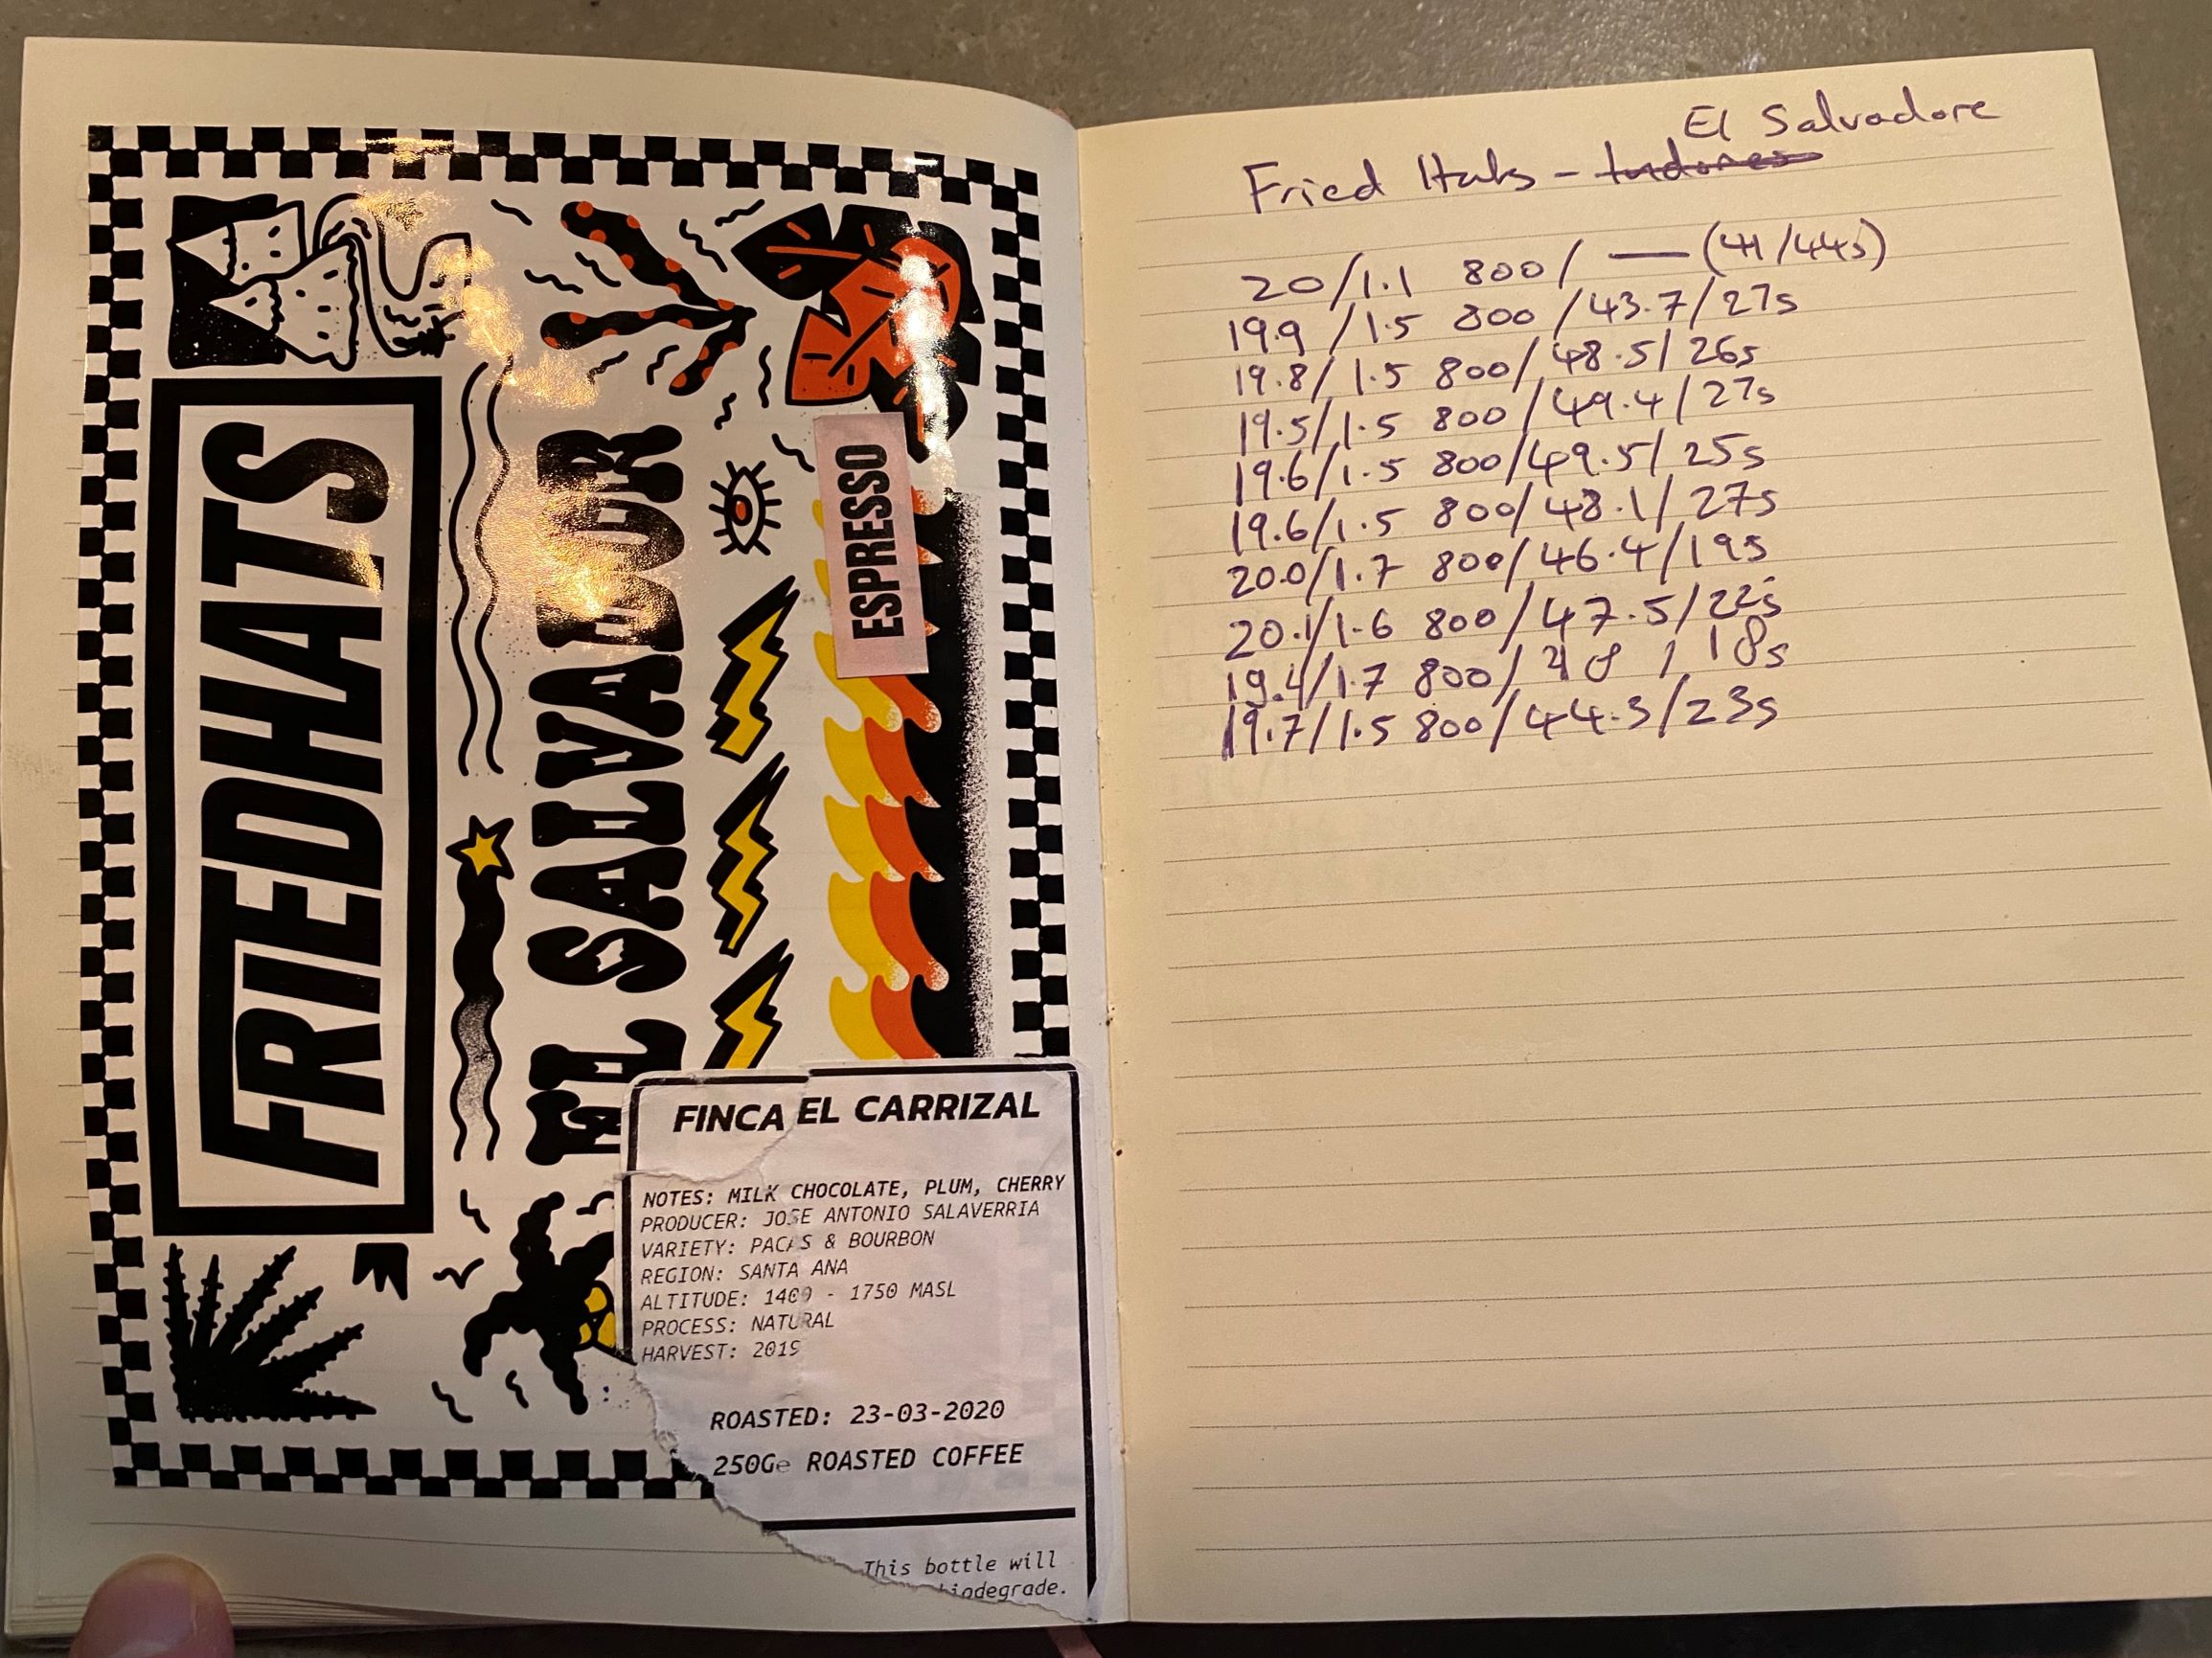 FRIEDHATS
EL SALVADOR
ESPRESSO
FINCA EL CARRIZAL
NOTES: MILK CHOCOLATE, PLUM, CHERRY
PRODUCER: JOSE ANTONIO SALAVERRIA
VARIETY: PACAS & BOURBON
REGION: SANTA ANA
ALTITUDE: 1400 - 1750 MASL
PROCESS: NATURAL
HARVEST: 2019
ROASTED: 23-03-2020
250Ge ROASTED COFFEE
This bottle will
biodegrade.
El Salvadore
Fried Hats -
20/1.1 800/ — (41/44s)
19.9/1.5 800/43.7/27s
19.8/1.5 800/48.5/26s
19.5/1.5 800/49.4/27s
19.6/1.5 800/49.5/25s
19.6/1.5 800/48.1/27s
20.0/1.7 800/46.4/19s
20.1/1.6 800/47.5/22s
19.4/1.7 800/ / 18s
19.7/1.5 800/44.3/23s